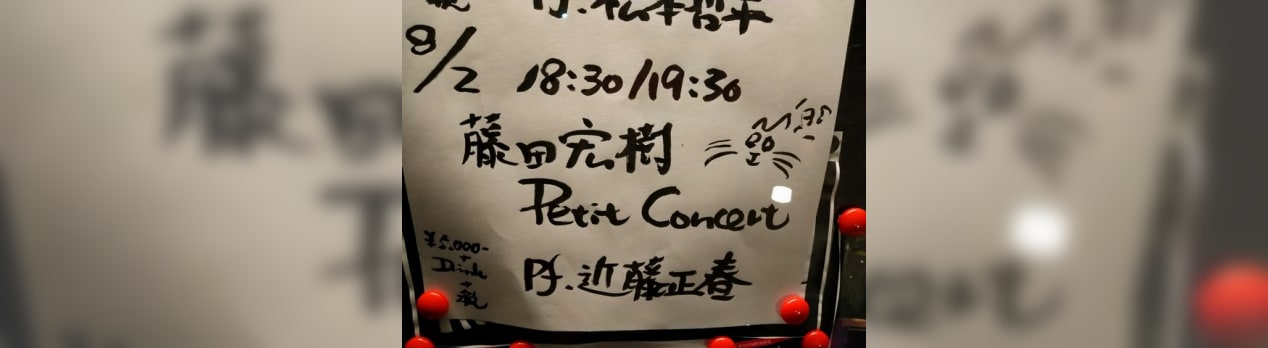 Pf.松本哲平
8/2 18:30/19:30
藤田宏樹
Petit Concert
¥5,000-
+
Drink
+
税
Pf.近藤正春